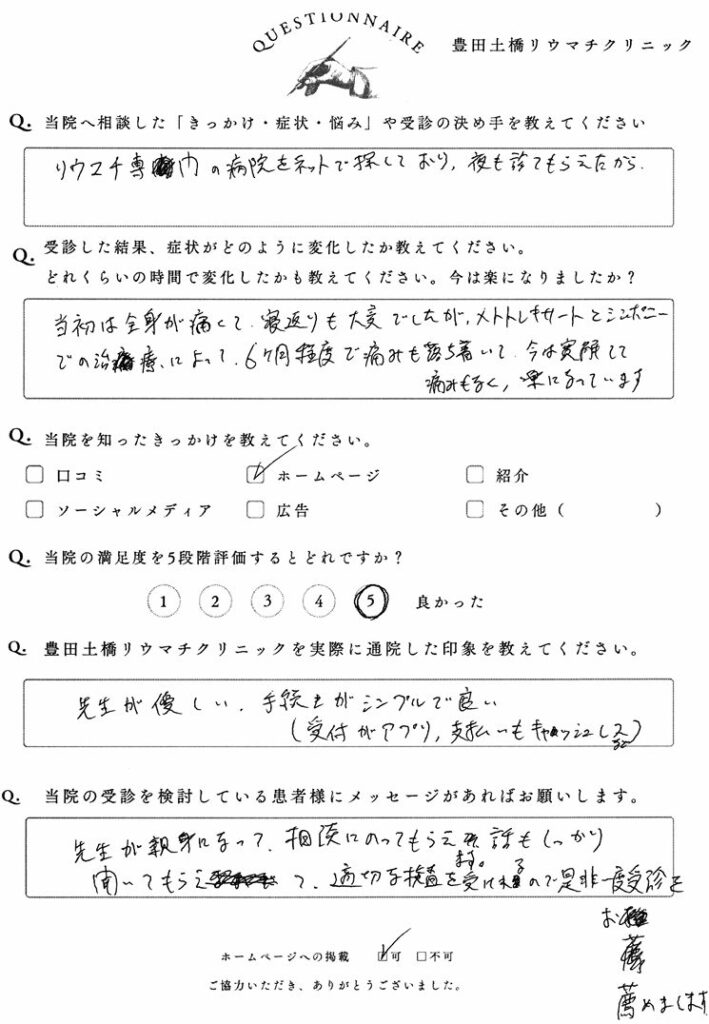 QUESTIONNAIRE
豊田土橋リウマチクリニック
Q. 当院へ相談した「きっかけ・症状・悩み」や受診の決め手を教えてください
リウマチ専門の病院をネットで探しており，夜も診てもらえたから．
Q. 受診した結果、症状がどのように変化したか教えてください。
どれくらいの時間で変化したかも教えてください。今は楽になりましたか？
当初は全身が痛くて．寝返りも大変でしたが，メトトレキサートとシンポニー
での治療によって，6ヶ月程度で痛みも落ち着いて．今は
痛みもなく，楽になっています
Q. 当院を知ったきっかけを教えてください。
口コミ ホームページ 紹介
ソーシャルメディア 広告 その他（ ）
Q. 当院の満足度を5段階評価するとどれですか？
1 2 3 4 5 良かった
Q. 豊田土橋リウマチクリニックを実際に通院した印象を教えてください。
先生が優しい．手続きがシンプルで良い
（受付がアプリ，支払いもキャッシュレス）
Q. 当院の受診を検討している患者様にメッセージがあればお願いします。
先生が親身になって，相談にのってもらえます。話もしっかり
聞いてもらえて，適切な検査を受けれるので是非一度受診を
お薦めします
ホームページへの掲載 可 不可
ご協力いただき、ありがとうございました。